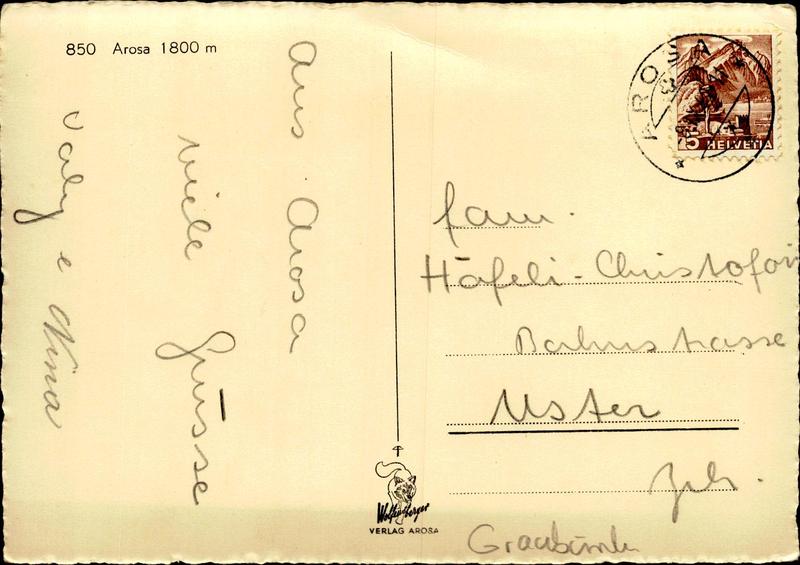 850 Arosa 1800 m
Aus Arosa
viele
Grüsse
Valy e Nina
AROSA
5 HELVETIA
Fam.
Häfeli-Christofori
Bahnstrasse
Uster
Zch.
Graubünden
Wolfensberger
VERLAG AROSA